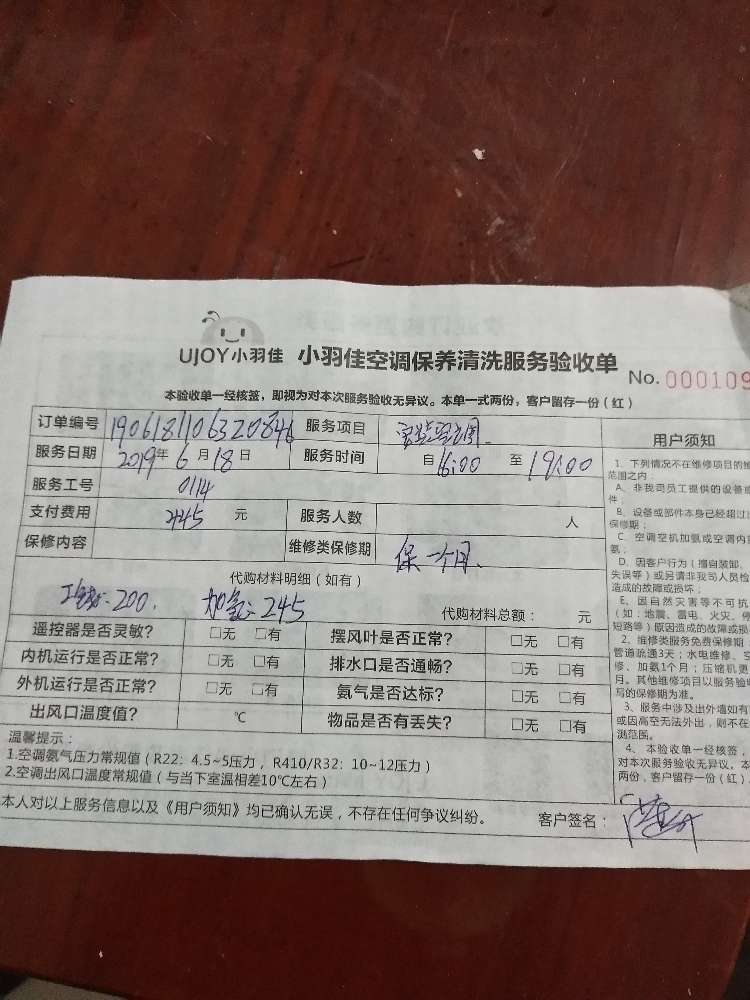 UJOY小羽佳 小羽佳空调保养清洗服务验收单
No. 000109
本验收单一经核签，即视为对本次服务验收无异议。本单一式两份，客户留存一份（红）
订单编号 1906181106320846 服务项目
服务日期 2019年6月18日 服务时间 自16:00至19:00
服务工号 0114
支付费用 445 元 服务人数 人
保修内容 维修类保修期 保一个月.
代购材料明细（如有）
200. 245 代购材料总额： 元
遥控器是否灵敏？ □无 □有 摆风叶是否正常？ □无 □有
内机运行是否正常？ □无 □有 排水口是否通畅？ □无 □有
外机运行是否正常？ □无 □有 氨气是否达标？ □无 □有
出风口温度值？ ℃ 物品是否有丢失？ □无 □有
温馨提示：
1.空调氨气压力常规值（R22：4.5~5压力，R410/R32：10~12压力）
2.空调出风口温度常规值（与当下室温相差10℃左右）
本人对以上服务信息以及《用户须知》均已确认无误，不存在任何争议纠纷。 客户签名：
用户须知
1、下列情况不在维修项目的维
范围之内：
A、非我司员工提供的设备或
件；
B、设备或部件本身已经超过
保修期；
C、空调空机加氨或空调内
氨；
D、因客户行为（擅自装卸、
失误等）或另请非我司人员检
造成的故障或损坏；
E、因自然灾害等不可抗
（如：地震、雷电、火灾、停
短路等）原因造成的故障或损
2、维修类服务免费保修期：
管道疏通3天；水电维修、空
修、加氨1个月；压缩机更
月。其他维修项目以服务验收
写的保修期为准。
3、服务中涉及出外墙如有
或因高空无法外出，则不在
测范围。
4、本验收单一经核签，
对本次服务验收无异议。本
两份，客户留存一份（红）